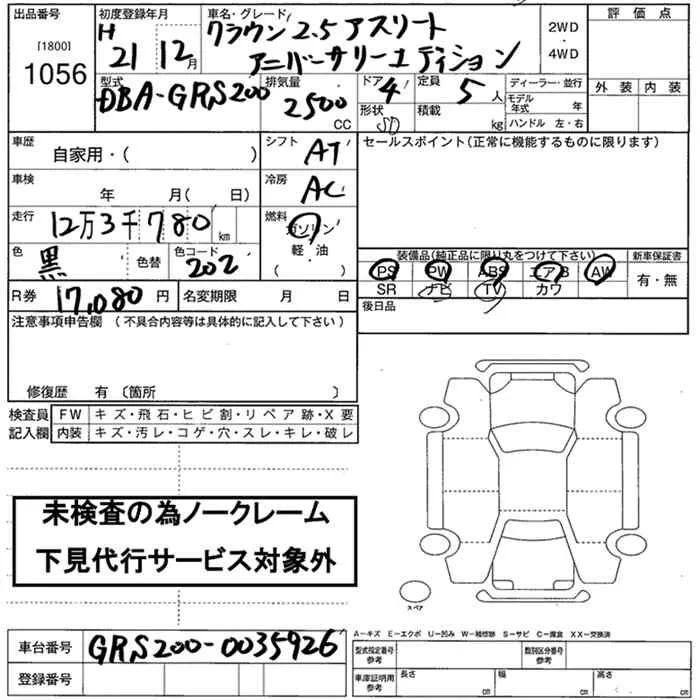 出品番号 初度登録年月 車名・グレード 評価点
[1800] H クラウン 2.5 アスリート 2WD
1056 21 12月 アニバーサリーエディション ・ 4WD
型式 排気量 ドア 定員 ディーラー・並行 外装 内装
DBA-GRS200 2500 CC 4 5人 モデル年式 年
形状 SD 積載 kg ハンドル 左・右
車歴 シフト セールスポイント(正常に機能するものに限ります)
自家用・( ) AT
車検 冷房
年 月( 日) AC
走行 燃料
12万3千780km ガソリン
色 色替 色コード 軽・油 装備品(純正品に限り丸をつけて下さい) 新車保証書
黒 202 ( ) PS PW ABS エアB AW 有・無
SR ナビ TV カワ
R券 17,080円 名変期限 月 日 後日品
注意事項申告欄 (不具合内容等は具体的に記入して下さい)
修復歴 有 〔箇所 〕
検査員 FW キズ・飛石・ヒビ割・リペア跡・X要
記入欄 内装 キズ・汚レ・コゲ・穴・スレ・キレ・破レ
未検査の為ノークレーム
下見代行サービス対象外
スペア
A－キズ E－エクボ U－凹み W－補修跡 S－サビ C－腐食 XX－交換済
車台番号 GRS200-0035926 型式指定番号 参考 類別区分番号 参考
登録番号 車庫証明用 参考 長さ cm 幅 cm 高さ cm